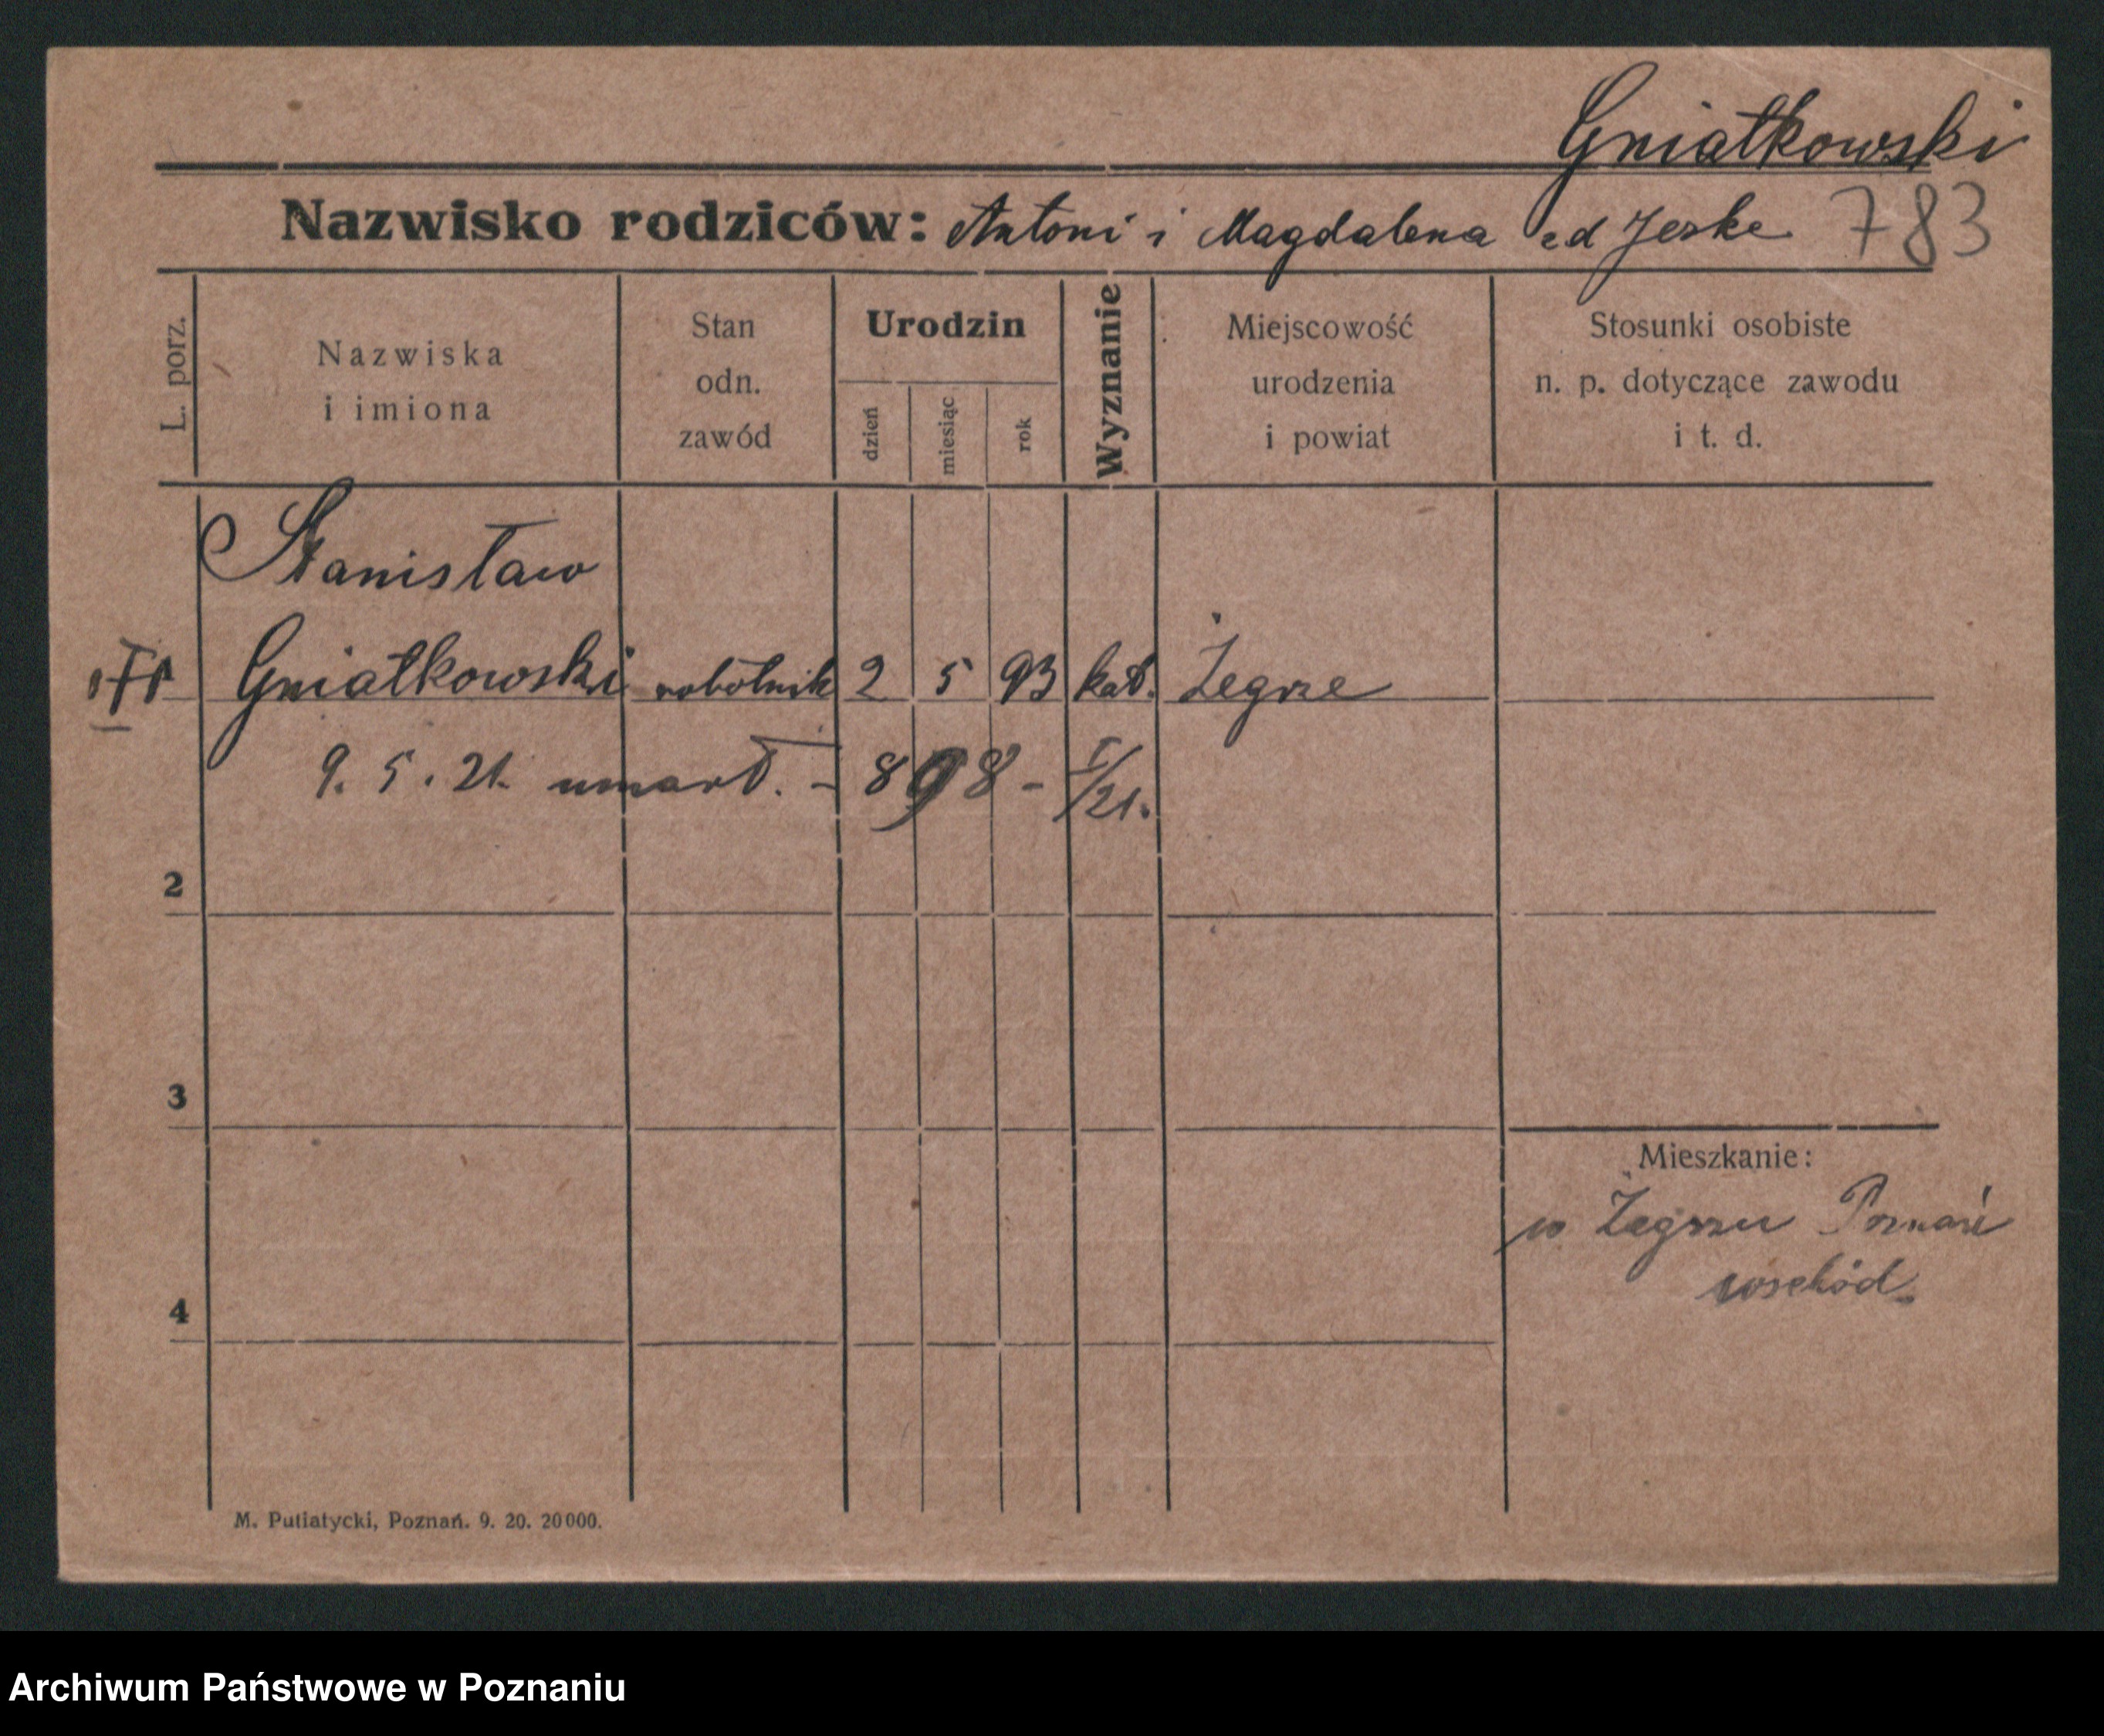 Gniatkowski
Nazwisko rodziców: Antoni i Magdalena od Jeske 783
L. porz.
Nazwiska
i imiona
Stan
odn.
zawód
Urodzin
dzień
miesiąc
rok
Wyznanie
Miejscowość
urodzenia
i powiat
Stosunki osobiste
n. p. dotyczące zawodu
i t. d.
Stanisław
Gniatkowski robotnik 2 5 93 kat. Żegrze
9. 5. 21. umarł. - 898 - I/21.
2
3
Mieszkanie:
w Żegrzu Poznań
wschód
4
M. Putiatycki, Poznań. 9. 20. 20000.
Archiwum Państwowe w Poznaniu